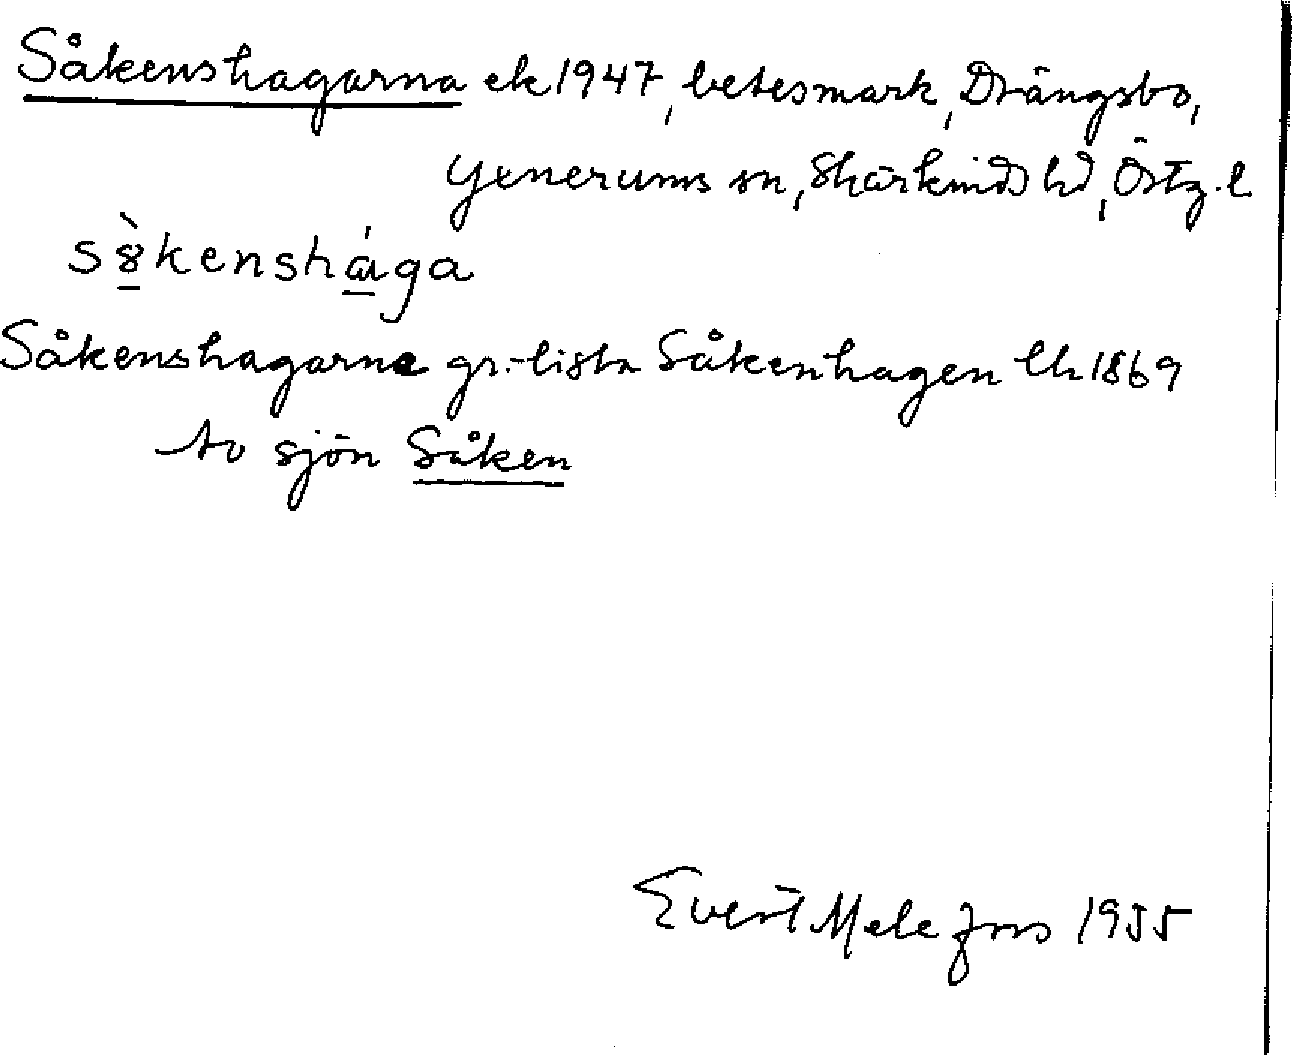 Såkenshagarna ek 1947, betesmark, Drängsbo,
Yxnerums sn, Skärkinds hd, Östg. l
sȣ̀kenshága
Såkenshagarne gr.-lista Såkenhagen lh 1869
to sjön Såken
Evert Melefors 1955